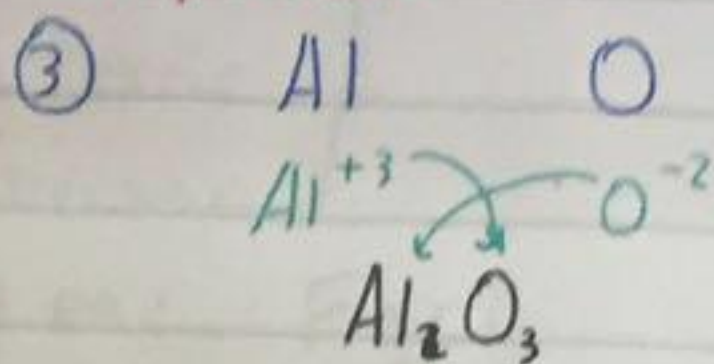 ③ Al O
Al⁺³ O⁻²
Al₂O₃